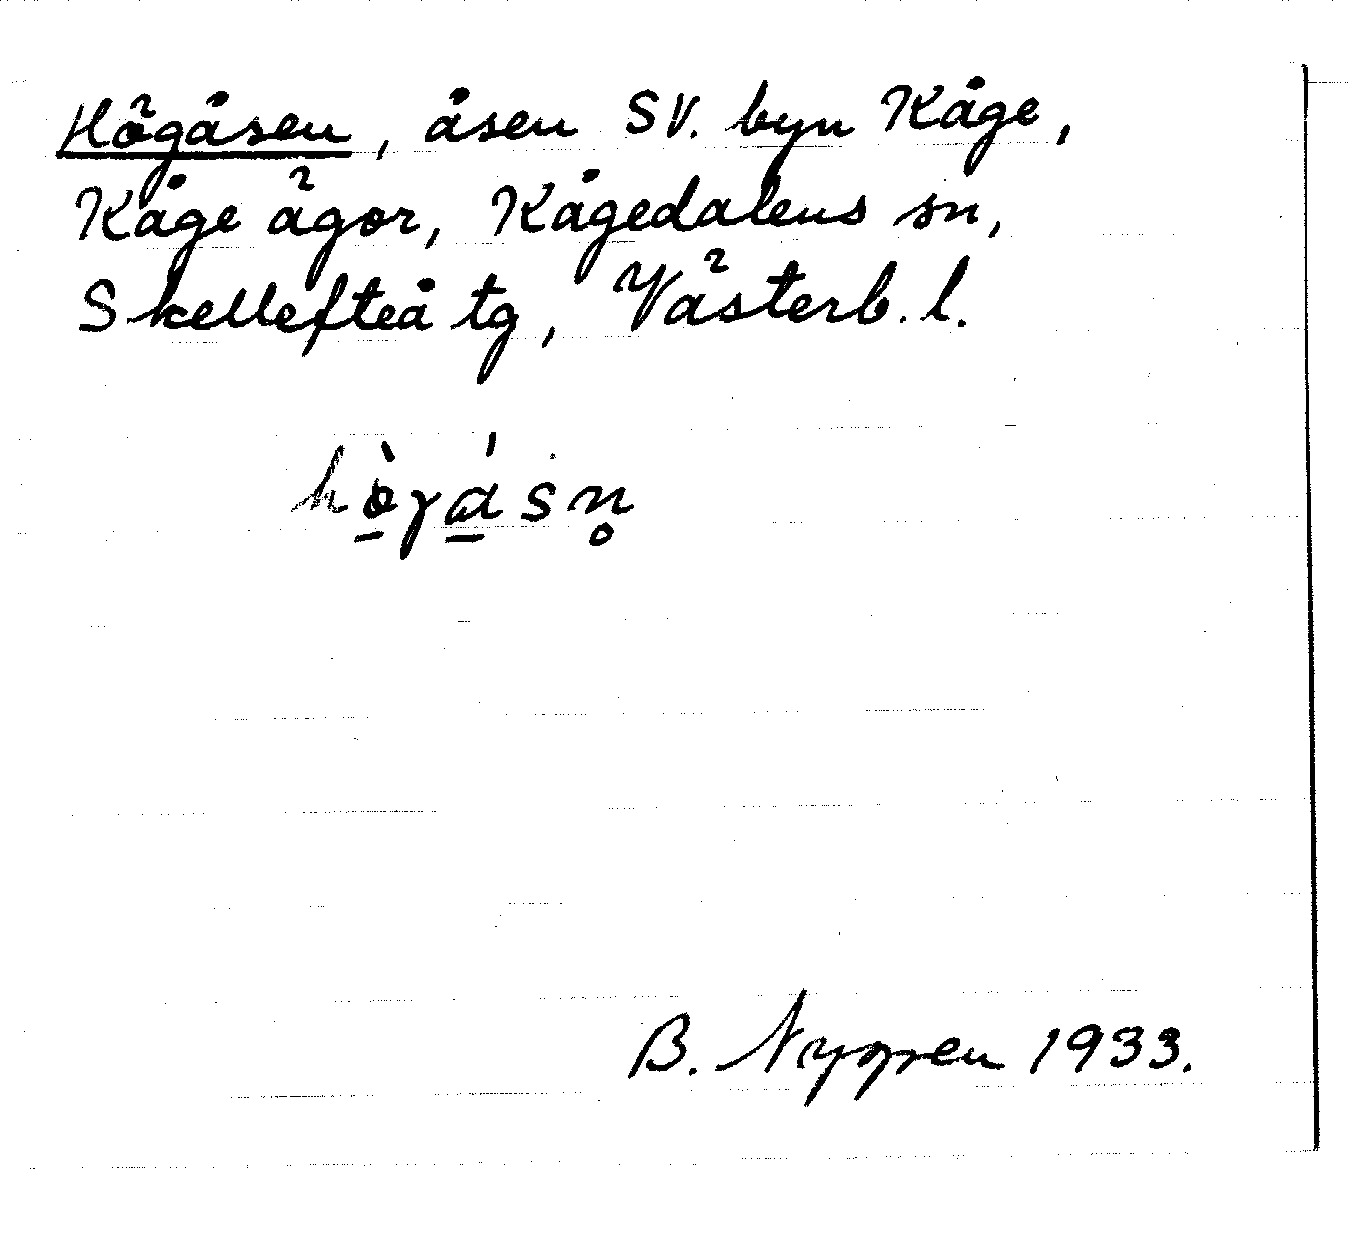 Högåsen, åsen SV. byn Kåge,
Kåge ägor, Kågedalens sn,
Skellefteå tg, Västerb. l.
B. Nygren 1933.